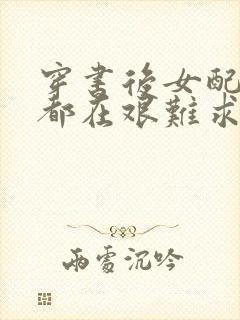 穿書後女配
都在艱難求
雨雪沉吟